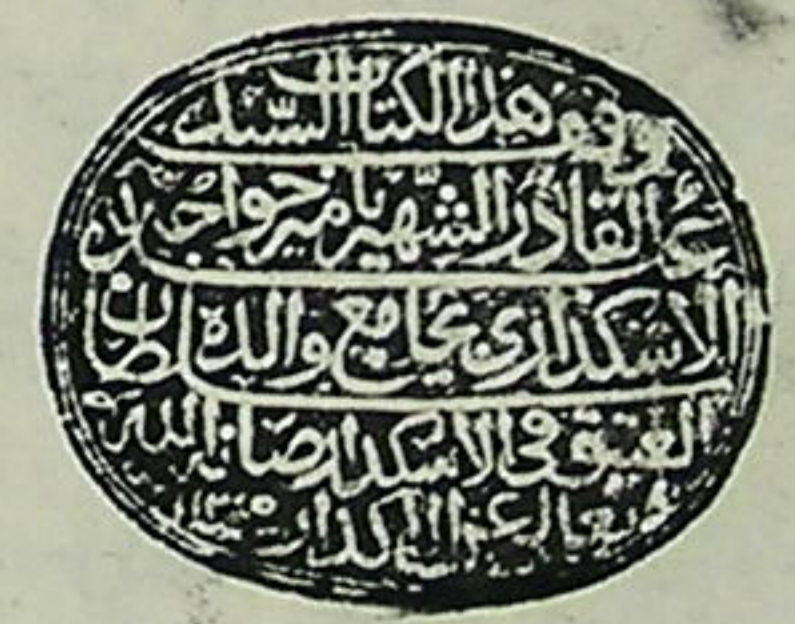 وقف هذا الكتاب السيد
عبد القادر الشهير بامير خواجه
الاسكداري بجامع والده سلطان
العتيق في الاسكدار صانها الله
تعالى عن الاكدار